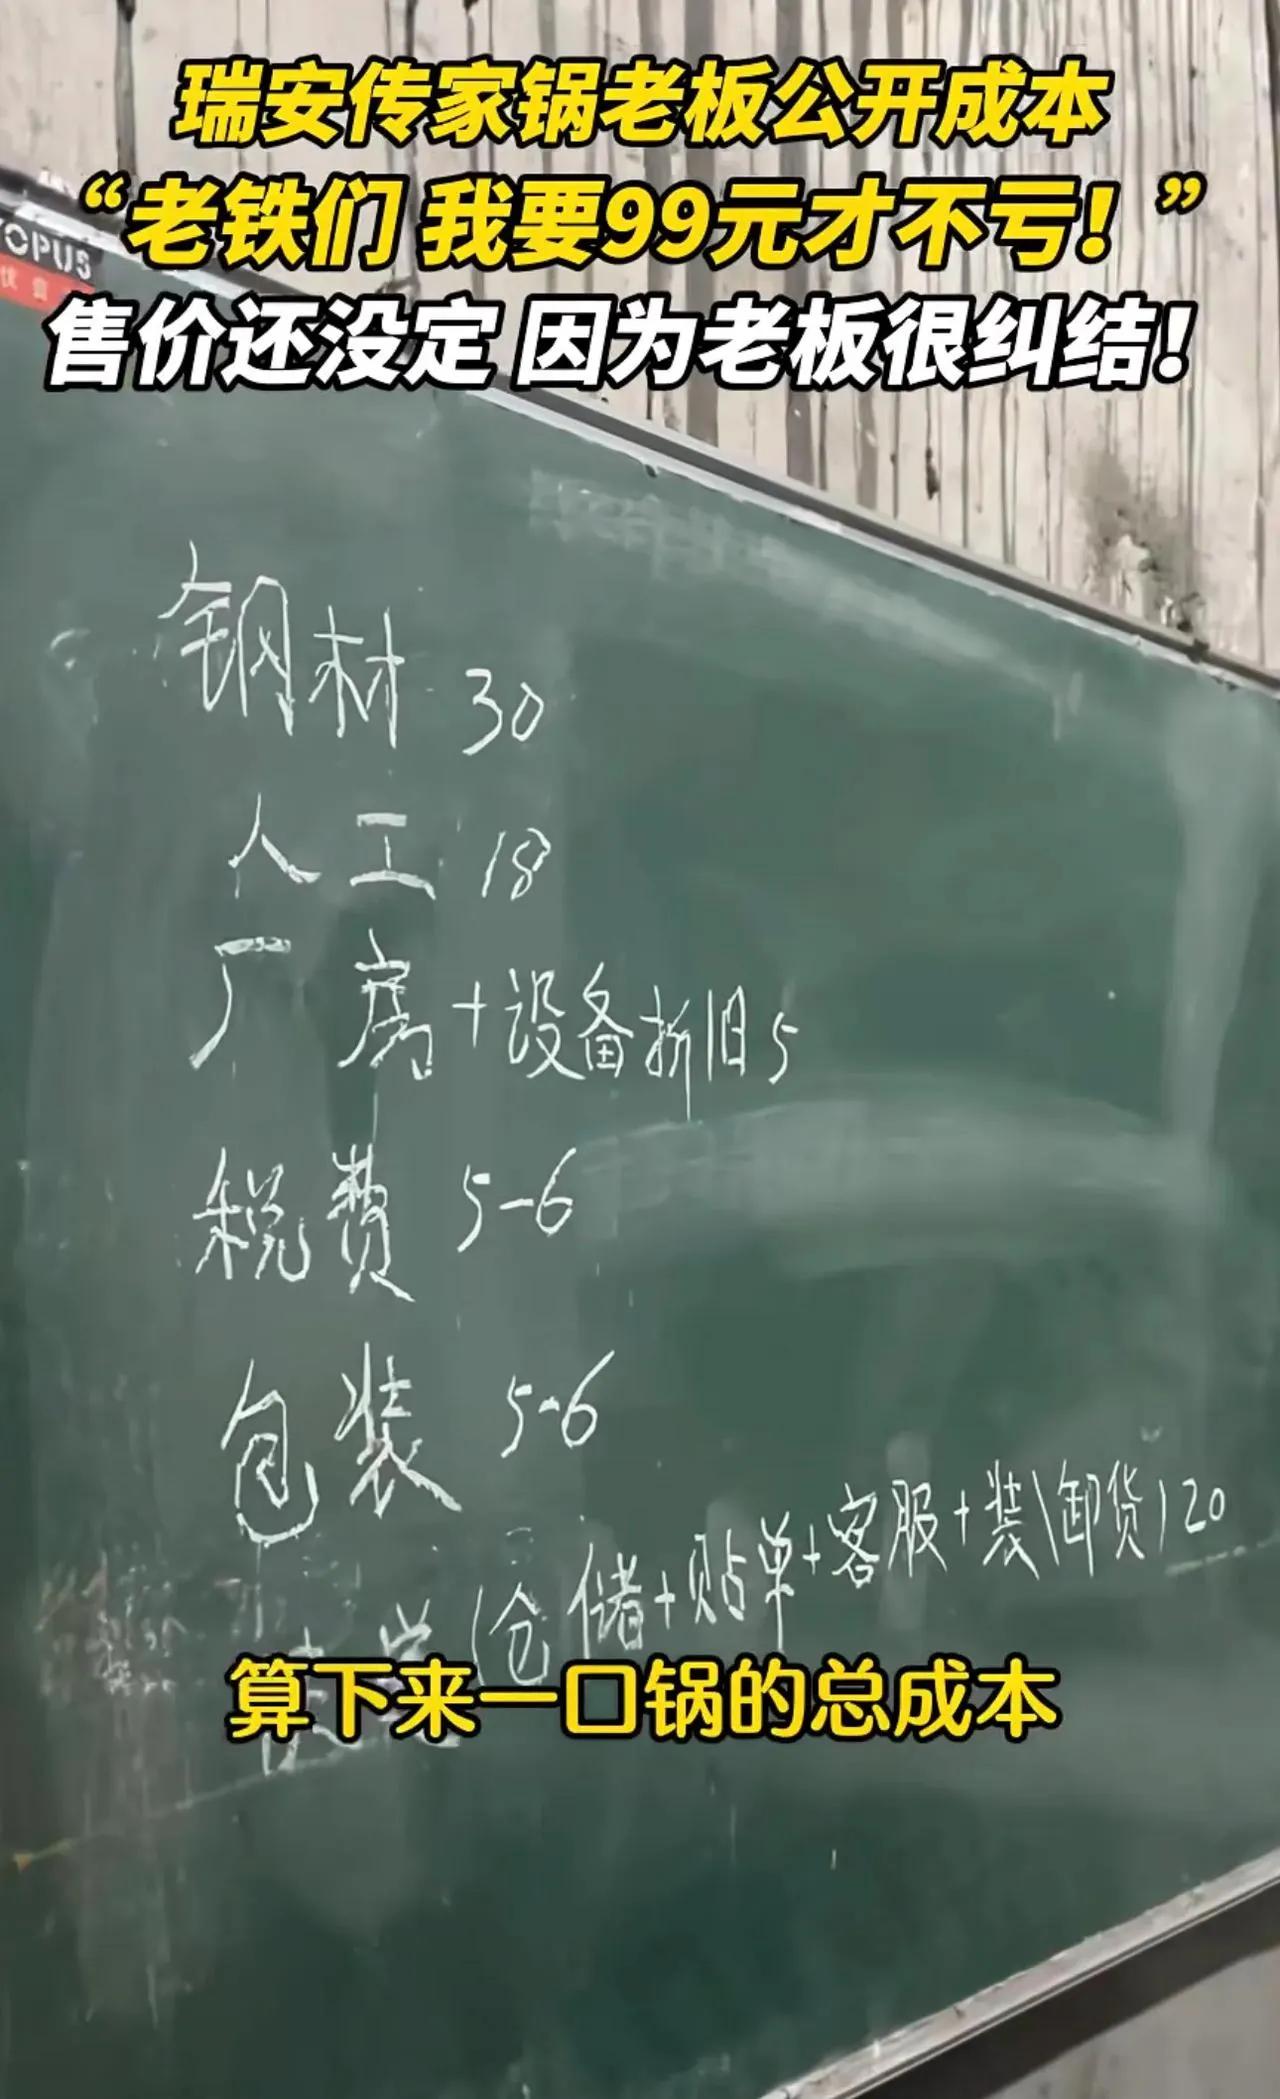 瑞安传家锅老板公开成本
“老铁们 我要99元才不亏！”
售价还没定 因为老板很纠结！
OPUS
钢材 30
人工 18
厂房+设备折旧5
税费 5-6
包装 5-6
(仓储+贴单+客服+装\卸货)20
算下来一口锅的总成本